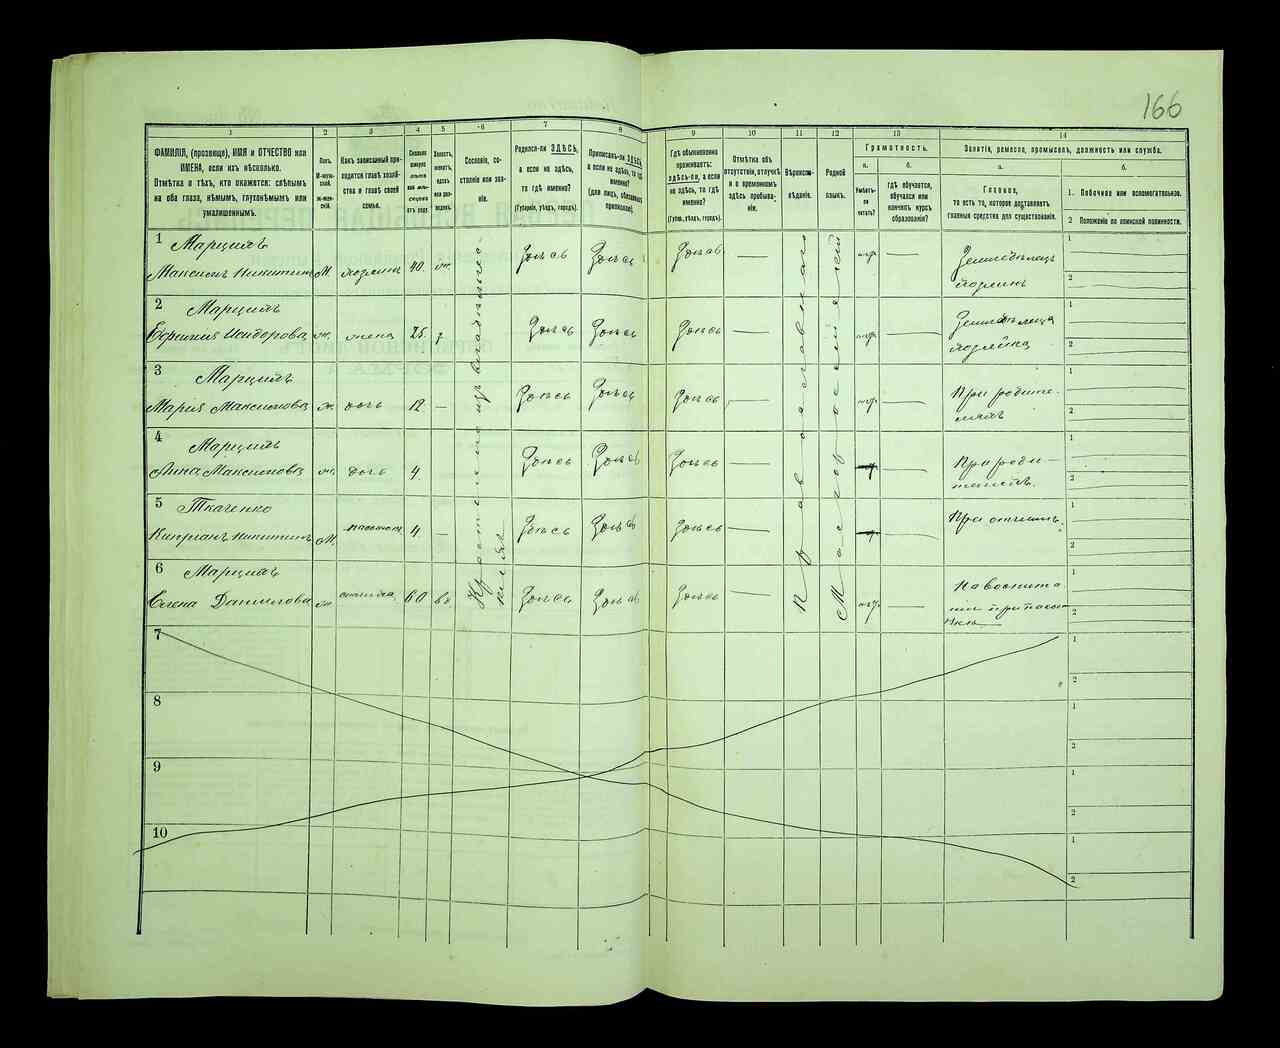 166
1 2 3 4 5 6 7 8 9 10 11 12 13 14
ФАМИЛІЯ, (прозвище), ИМЯ и ОТЧЕСТВО или
ИМЕНА, если ихъ нѣсколько.
Отмѣтка о тѣхъ, кто окажется: слѣпымъ
на оба глаза, нѣмымъ, глухонѣмымъ или
умалишеннымъ.
Полъ.
М-мужской.
Ж-женскій.
Какъ записанный приходится
главѣ хозяйства
и главѣ своей
семьи.
Сколько
минуло
лѣтъ
или мѣсяцевъ
отъ роду.
Холостъ,
женатъ,
вдовъ
или разведенъ.
Сословіе, состояніе
или званіе.
Родился-ли ЗДѢСЬ,
а если не здѣсь,
то гдѣ именно?
(Губернія, уѣздъ, городъ).
Приписанъ-ли ЗДѢСЬ,
а если не здѣсь, то гдѣ
именно?
(для лицъ, обязанныхъ
припискою).
Гдѣ обыкновенно
проживаетъ:
здѣсь-ли, а если
не здѣсь, то гдѣ
именно?
(Губерн., уѣздъ, городъ).
Отмѣтка объ
отсутствіи, отлучкѣ
и о временномъ
здѣсь пребываніи.
Вѣроисповѣданіе.
Родной
языкъ.
Грамотность.
а.
Умѣетъ-ли
читать?
б.
гдѣ обучается,
обучался или
кончилъ курсъ
образованія?
Занятіе, ремесло, промыселъ, должность или служба.
а.
Главное,
то есть то, которое доставляетъ
главныя средства для существованія.
б.
1. Побочное или вспомогательное.
2 Положеніе по воинской повинности.
Крестьянинъ изъ
Православнаго
Малороссійскій
1 Марцимъ
Максимъ Никитинъ М хозяинъ 40 ж. Здѣсь Здѣсь Здѣсь — нгр — Земледѣлецъ
хозяинъ
1
2
2 Марцимъ
Ефимія Исидорова ж. жена 25 Здѣсь Здѣсь Здѣсь — нгр — Земледѣлица
хозяйка
1
2
3 Марцимъ
Марія Максимова ж. дочь 12 — Здѣсь Здѣсь Здѣсь — нгр — При родителяхъ
1
2
4 Марцимъ
Анна Максимова ж. дочь 4 Здѣсь Здѣсь Здѣсь — — При родителяхъ
1
2
5 Ткаченко
Кипріанъ Никитинъ М. 4 — Здѣсь Здѣсь Здѣсь — — При отчимѣ
1
2
6 Марцимъ
Елена Данилова ж. 60 вд. Здѣсь Здѣсь Здѣсь — нгр. —
1
2
7 1
2
8 1
2
9 1
2
10 1
2